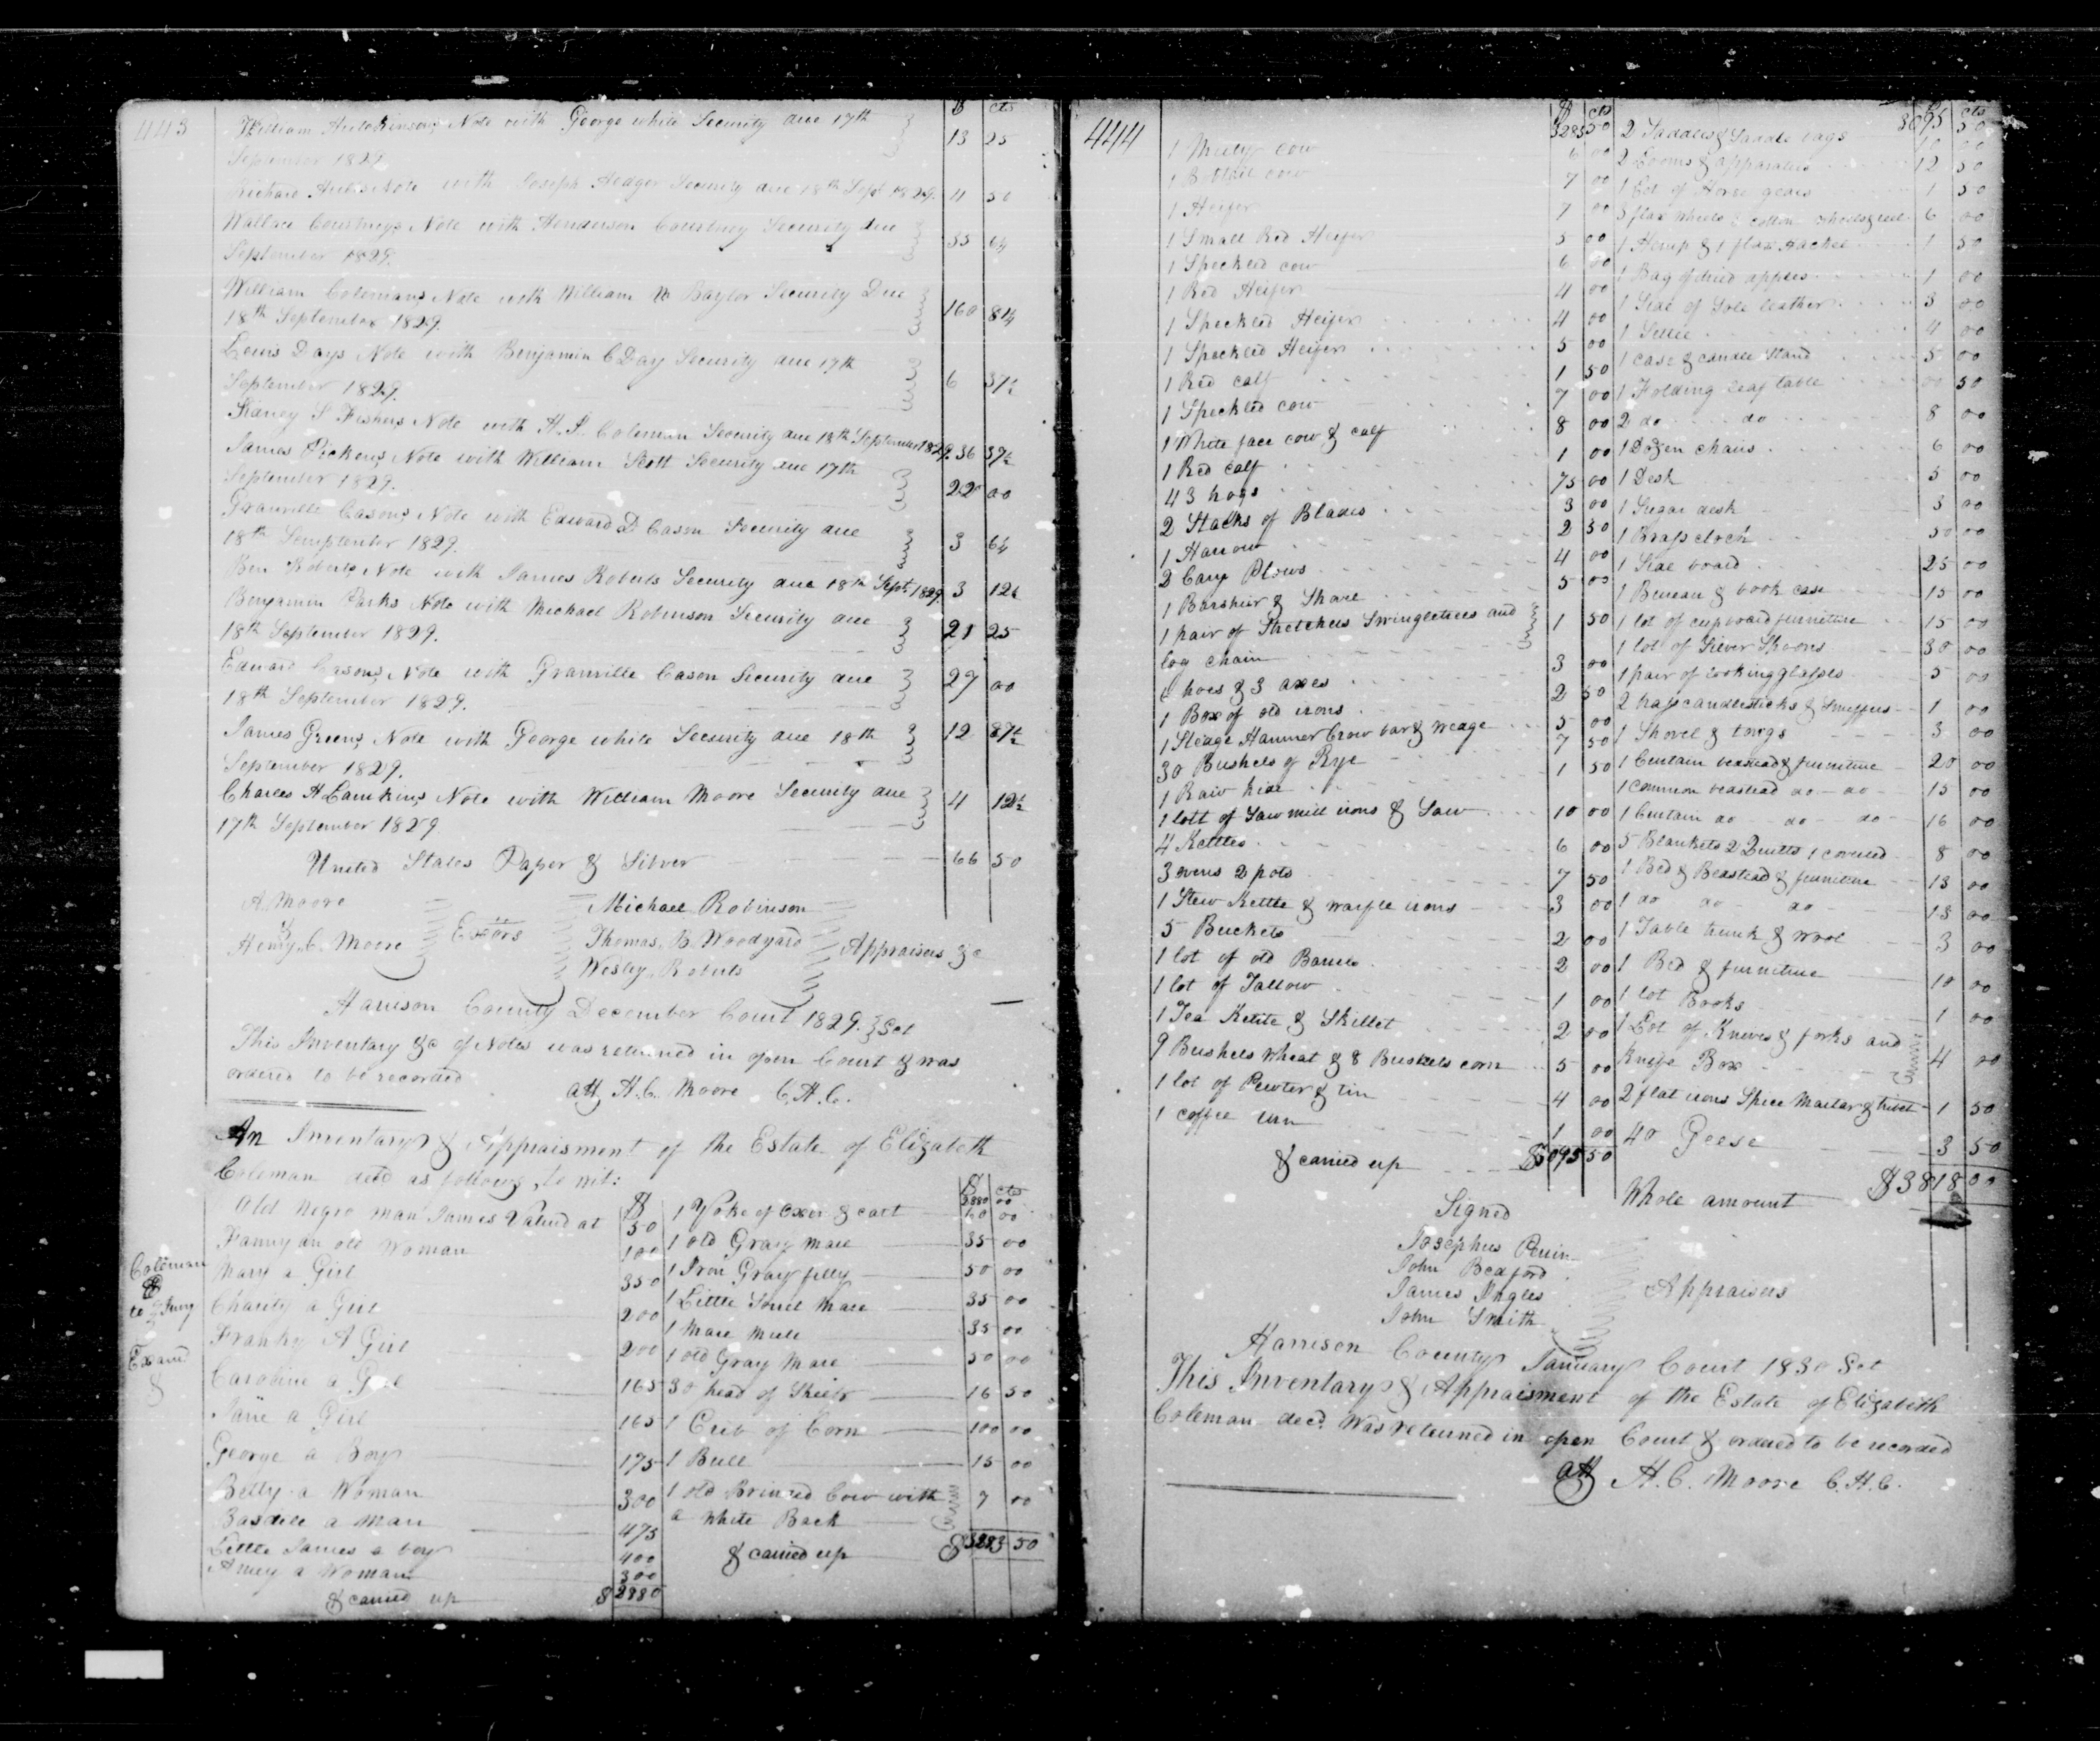 443
$ cts
William Note with George white Security due 17th
September 1829. 13 25
Richard Note with Joseph Security due 18th Sept 1829. 4 50
Wallace Courtneys Note with Henderson Courtney Security due
September 1829. 33 64
William Colemans Note with William W Baylor Security Due
18th September 1829. 160 84
Lewis Days Note with Benjamin C Day Security due 17th
September 1829. 6 37½
S Fishers Note with H. S. Coleman Security due 18th September 1829. 36 37½
James Pickens Note with William Scott Security due 17th
September 1829. 22 00
Granville Casons Note with Edward D Cason Security due
18th Semptember 1829. 3 64
Ben Roberts Note with James Roberts Security due 18th Sept 1829. 3 12½
Benjamin Parks Note with Michael Robinson Security due
18th September 1829. 21 25
Edward Casons Note with Granville Cason Security due
18th September 1829. 27 00
James Greens Note with George white Security due 18th
September 1829. 12 87½
Charles H Lamkins Note with William Moore Security due
17th September 1829 4 12½
United States Paper & Silver 66 50
A. Moore
&
Henry C. Moore
Exors
Michael Robinson
Thomas B. Woodyard
Wesley Roberts
Appraisers &c
Harrison County December Court 1829. Sct
This Inventory &c of Notes was returned in open Court & was
ordered to be recorded
att H. C. Moore C.H.C.
An Inventory & Appraisment of the Estate of Elizabeth
Coleman decd as follows, to wit:
Coleman
to Jury
Examd
$
Old Negro man James Valued at 50
Fanny an old Woman 100
Mary a Girl 350
Charity a Girl 200
Franky A Girl 200
Caroline a Girl 165
Jane a Girl 165
George a Boy 175
Betty a Woman 300
a Man 475
Little James a boy 400
Amey a Woman 300
& carried up $2880
$ cts
2880 00
1 Yoke of Oxen & cart 60 00
1 old Gray Mare 35 00
1 Iron Gray filly 50 00
1 Little Sorrel Mare 35 00
1 Mare Mule 35 00
1 old Gray Mare 50 00
30 head of Sheep 16 50
1 Crib of Corn 100 00
1 Bull 15 00
1 old Brinded Cow with
a White Back 7 00
& carried up $3283 50
444
$ cts
3283 50
1 Cow 6 00
1 Bobtail cow 7 00
1 Heifer 7 00
1 Small Red Heifer 5 00
1 Speckled cow 6 00
1 Red Heifer 4 00
1 Speckled Heifer 4 00
1 Speckled Heifer 5 00
1 Red calf 1 50
1 Speckled cow 7 00
1 White face cow & calf 8 00
1 Red calf 1 00
43 hogs 75 00
2 Stacks of Blades 3 00
1 Harrow 2 50
2 Cary Plows 4 00
1 Barshier & Share 5 00
1 pair of Stretchers Swingletrees and
log chain 1 50
hoes & 3 axes 3 00
1 Box of old irons 2 50
1 Sledge Hammer Crow bar & wedge 5 00
30 Bushels of Rye 7 50
1 Raw hide 1 50
1 lott of Saw mill irons & Saw 10 00
4 Kettles 6 00
3 ovens 2 pots 7 50
1 Stew Kettle & waffle irons 3 00
5 Buckets 2 00
1 lot of old Barrels 2 00
1 lot of Tallow 1 00
1 Tea Kettle & Skillet 2 00
9 Bushels Wheat & 8 Bushels corn 5 00
1 lot of Pewter & tin 4 00
1 coffee urn 1 00
& carried up $3095 50
$ cts
3095 50
2 Saddles & Saddle bags 10 00
2 Looms & apparatus 12 50
1 Lot of Horse gears 1 50
3 flax wheels 2 cotton wheels & reel 6 00
1 Hemp & 1 flax Hackel 1 50
1 Bag of dried apples 1 00
1 Side of Sole leather 3 00
1 Settee 4 00
1 case & candle Stand 5 00
1 Folding leaf table 00 50
2 do do 8 00
1 Dozen chairs 6 00
1 Desk 5 00
1 Sugar desk 3 00
1 Brass clock 50 00
1 Side board 25 00
1 Bureau & book case 15 00
1 lot of cupboard furniture 15 00
1 lot of Silver Spoons 30 00
1 pair of looking glasses 5 00
2 brass candlesticks & Snuffers 1 00
1 Shovel & tongs 3 00
1 Curtain beadstead & furniture 20 00
1 common beadstead do do 15 00
1 Curtain do do do 16 00
5 Blankets 2 Quilts 1 coverled 8 00
1 Bed & Beadstead & furniture 13 00
1 do do do 13 00
1 Table trunk & wool 3 00
1 Bed & furniture 10 00
1 lot Books 1 00
1 Lot of Knives & forks and
Knife Box 4 00
2 flat irons Spice Mortar & trivet 1 50
40 Geese 3 50
Whole amount $3818 00
Signed
Josephus Perrin
John Bedford
James Ingles
John Smith
Appraisers
Harrison County January Court 1830 Sct
This Inventory & Appraisment of the Estate of Elizabeth
Coleman decd. Was returned in open Court & ordered to be recorded
att H. C. Moore C.H.C.